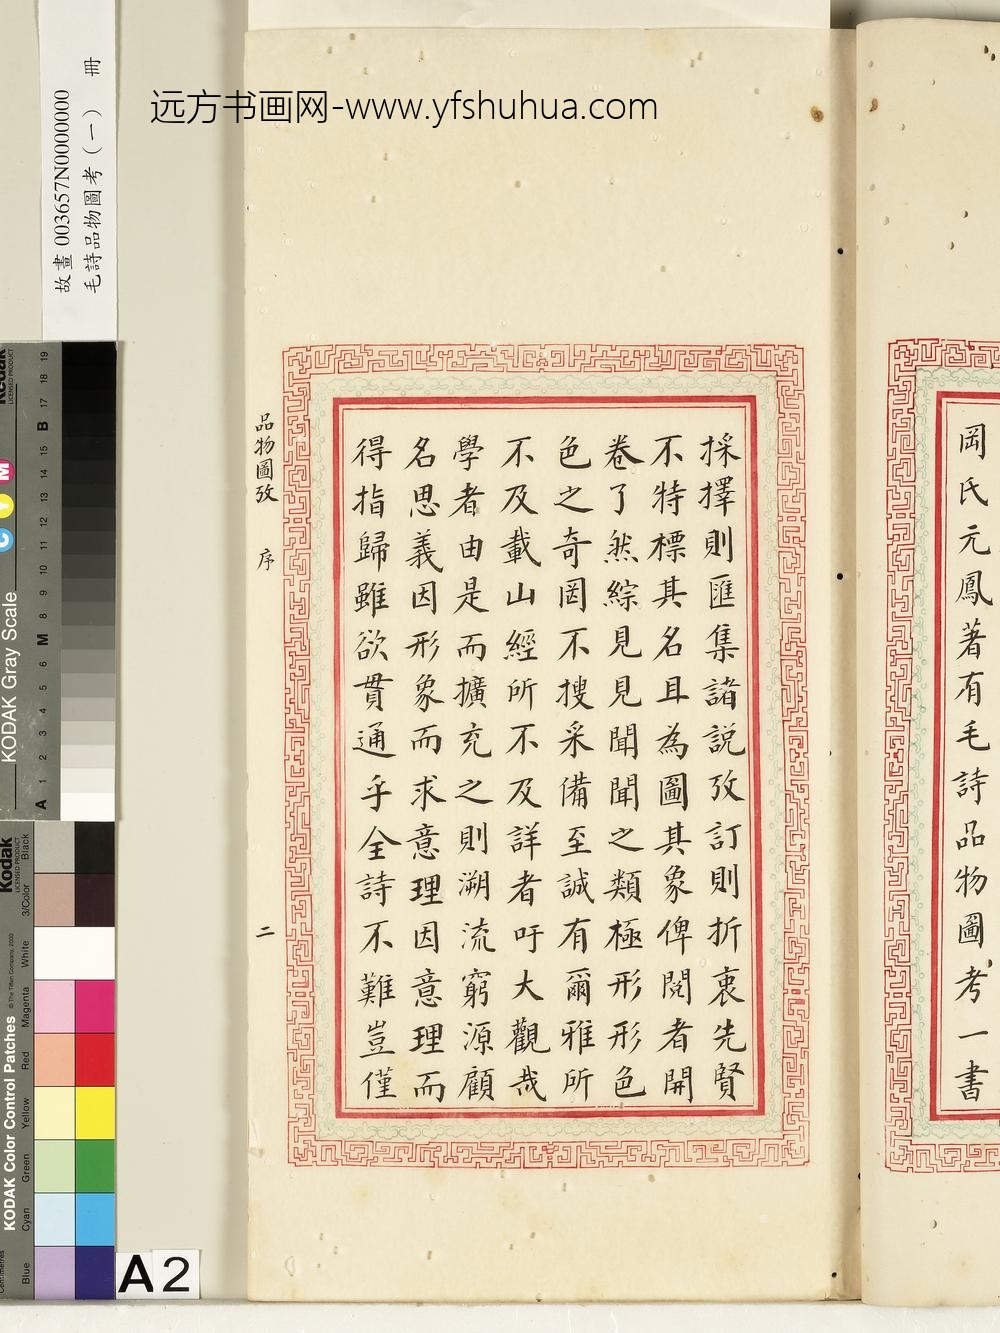 远方书画网-www.yfshuhua.com
故畫 003657N0000000
毛詩品物圖考（一） 冊
岡氏元鳳著有毛詩品物圖考一書
採擇則匯集諸説攷訂則折衷先賢
不特標其名且為圖其象俾閱者開
卷了然綜見見聞聞之類極形形色
色之奇罔不搜采備至誠有爾雅所
不及載山經所不及詳者吁大觀哉
學者由是而擴充之則溯流窮源顧
名思義因形象而求意理因意理而
得指歸雖欲貫通乎全詩不難豈僅
品物圖攷 序 二
Kodak
LICENSED PRODUCT
KODAK Gray Scale
C Y M
A 1 2 3 4 5 6 M 8 9 10 11 12 13 14 15 B 17 18 19
Kodak
LICENSED PRODUCT
KODAK Color Control Patches
© The Tiffen Company, 2000
Blue Cyan Green Yellow Red Magenta White 3/Color Black
Centimetres
A 2